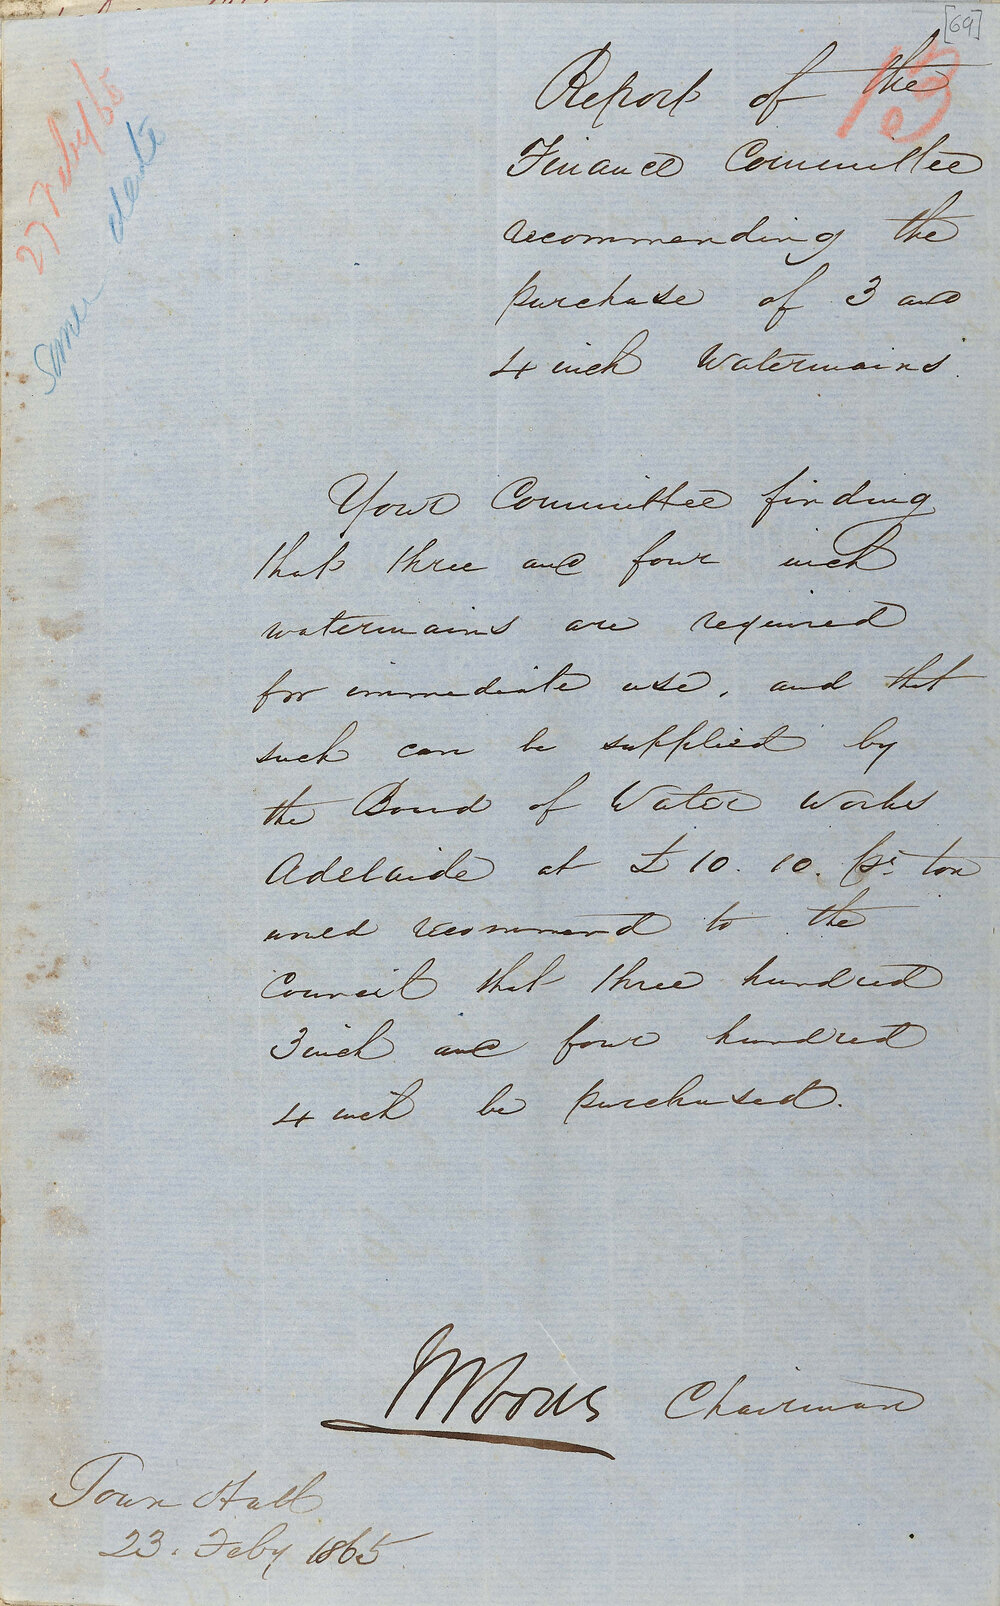 [69]
13
27 Feby/65
same date
Report of the
Finance Committee
recommending the
purchase of 3 and
4 inch Watermains.
Your Committee finding
that three and four inch
watermains are required
for immediate use, and that
such can be supplied by
the Board of Water Works
Adelaide at £10.10. pr ton
and recommend to the
Council that three hundred
3 inch and four hundred
4 inch be purchased.
Chairman
Town Hall
23. Feby 1865